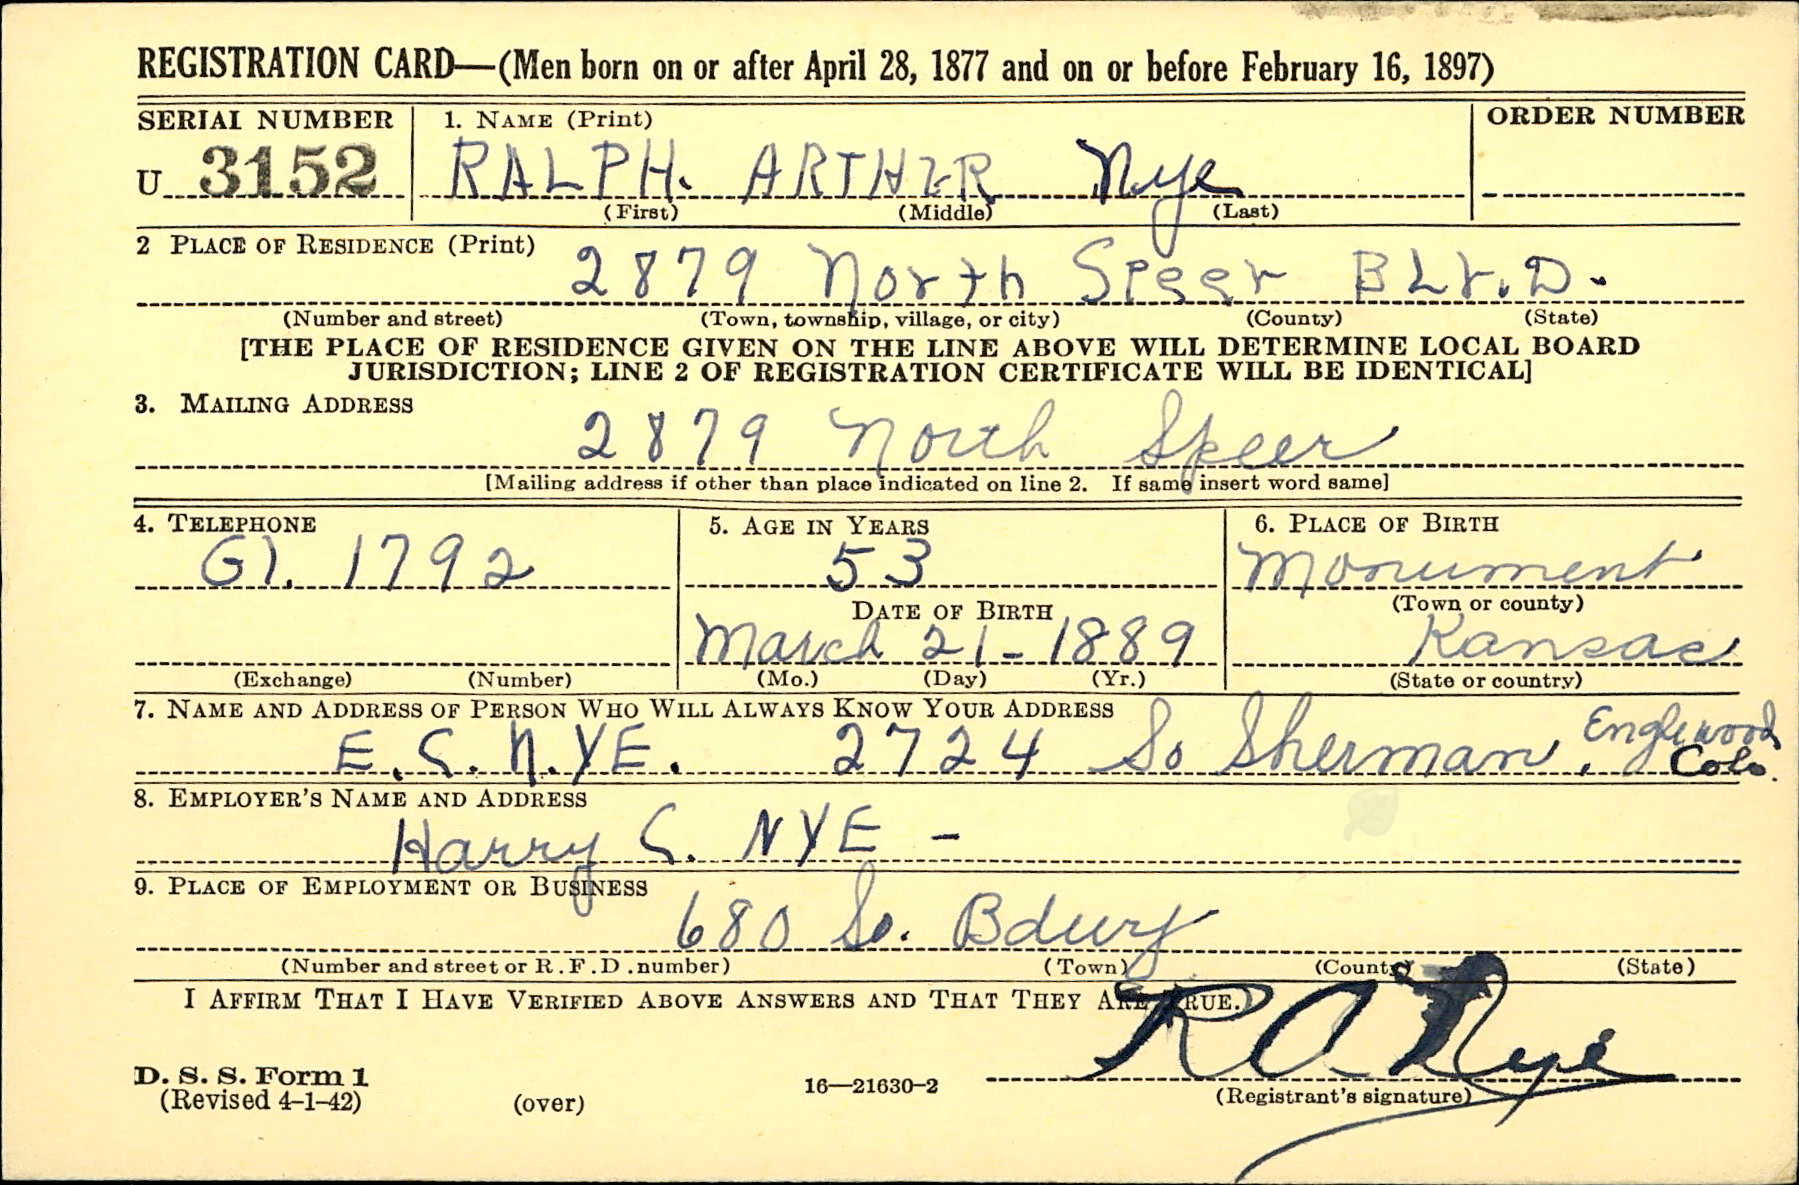 REGISTRATION CARD—(Men born on or after April 28, 1877 and on or before February 16, 1897)
SERIAL NUMBER 1. NAME (Print) ORDER NUMBER
U 3152 RALPH. ARTHUR Nye
(First) (Middle) (Last)
2 PLACE OF RESIDENCE (Print)
2879 North Speer BLV.D.
(Number and street) (Town, township, village, or city) (County) (State)
[THE PLACE OF RESIDENCE GIVEN ON THE LINE ABOVE WILL DETERMINE LOCAL BOARD
JURISDICTION; LINE 2 OF REGISTRATION CERTIFICATE WILL BE IDENTICAL]
3. MAILING ADDRESS
2879 North Speer
[Mailing address if other than place indicated on line 2. If same insert word same]
4. TELEPHONE 5. AGE IN YEARS 6. PLACE OF BIRTH
Gl. 1792 53 Monument
(Town or county)
DATE OF BIRTH
March 21-1889 Kansas
(Exchange) (Number) (Mo.) (Day) (Yr.) (State or country)
7. NAME AND ADDRESS OF PERSON WHO WILL ALWAYS KNOW YOUR ADDRESS
E. C. NYE. 2724 So Sherman, Englewood
Colo.
8. EMPLOYER'S NAME AND ADDRESS
Harry C. NYE -
9. PLACE OF EMPLOYMENT OR BUSINESS
680 So. Bdwy
(Number and street or R.F.D. number) (Town) (County) (State)
I AFFIRM THAT I HAVE VERIFIED ABOVE ANSWERS AND THAT THEY ARE TRUE.
R A Nye
D. S. S. Form 1
(Revised 4-1-42) (over) 16—21630-2 (Registrant's signature)